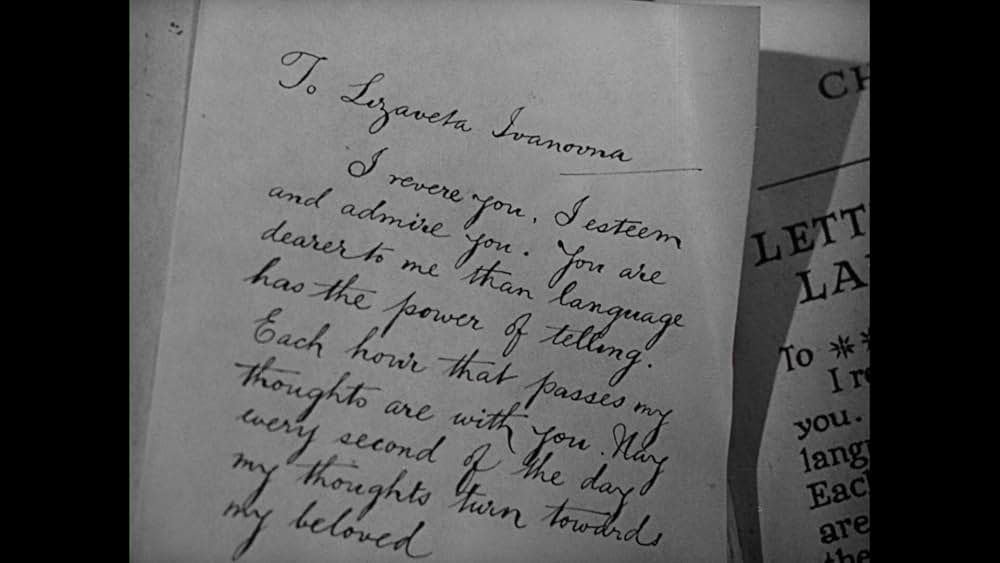 To Lizaveta Ivanovna
I revere you, I esteem
and admire you. You are
dearer to me than language
has the power of telling.
Each hour that passes my
thoughts are with you. Nay
every second of the day
my thoughts turn towards
my beloved
CH
LETT
LA
To **
I re
you.
lang
Eac
are
the